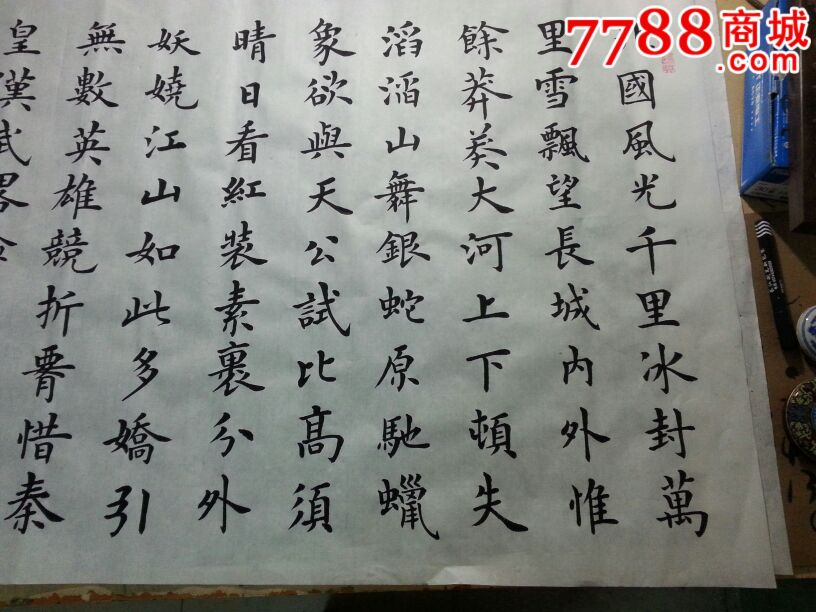 7788商城
國風光千里冰封萬
里雪飄望長城內外惟
餘莽莽大河上下頓失
滔滔山舞銀蛇原馳蠟
象欲與天公試比高須
晴日看紅裝素裹分外
妖嬈江山如此多嬌引
無數英雄競折腰惜秦
皇漢武